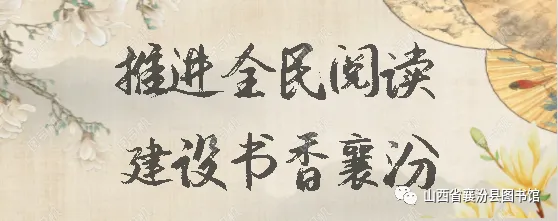 推进全民阅读
建设书香襄汾
山西省襄汾县图书馆